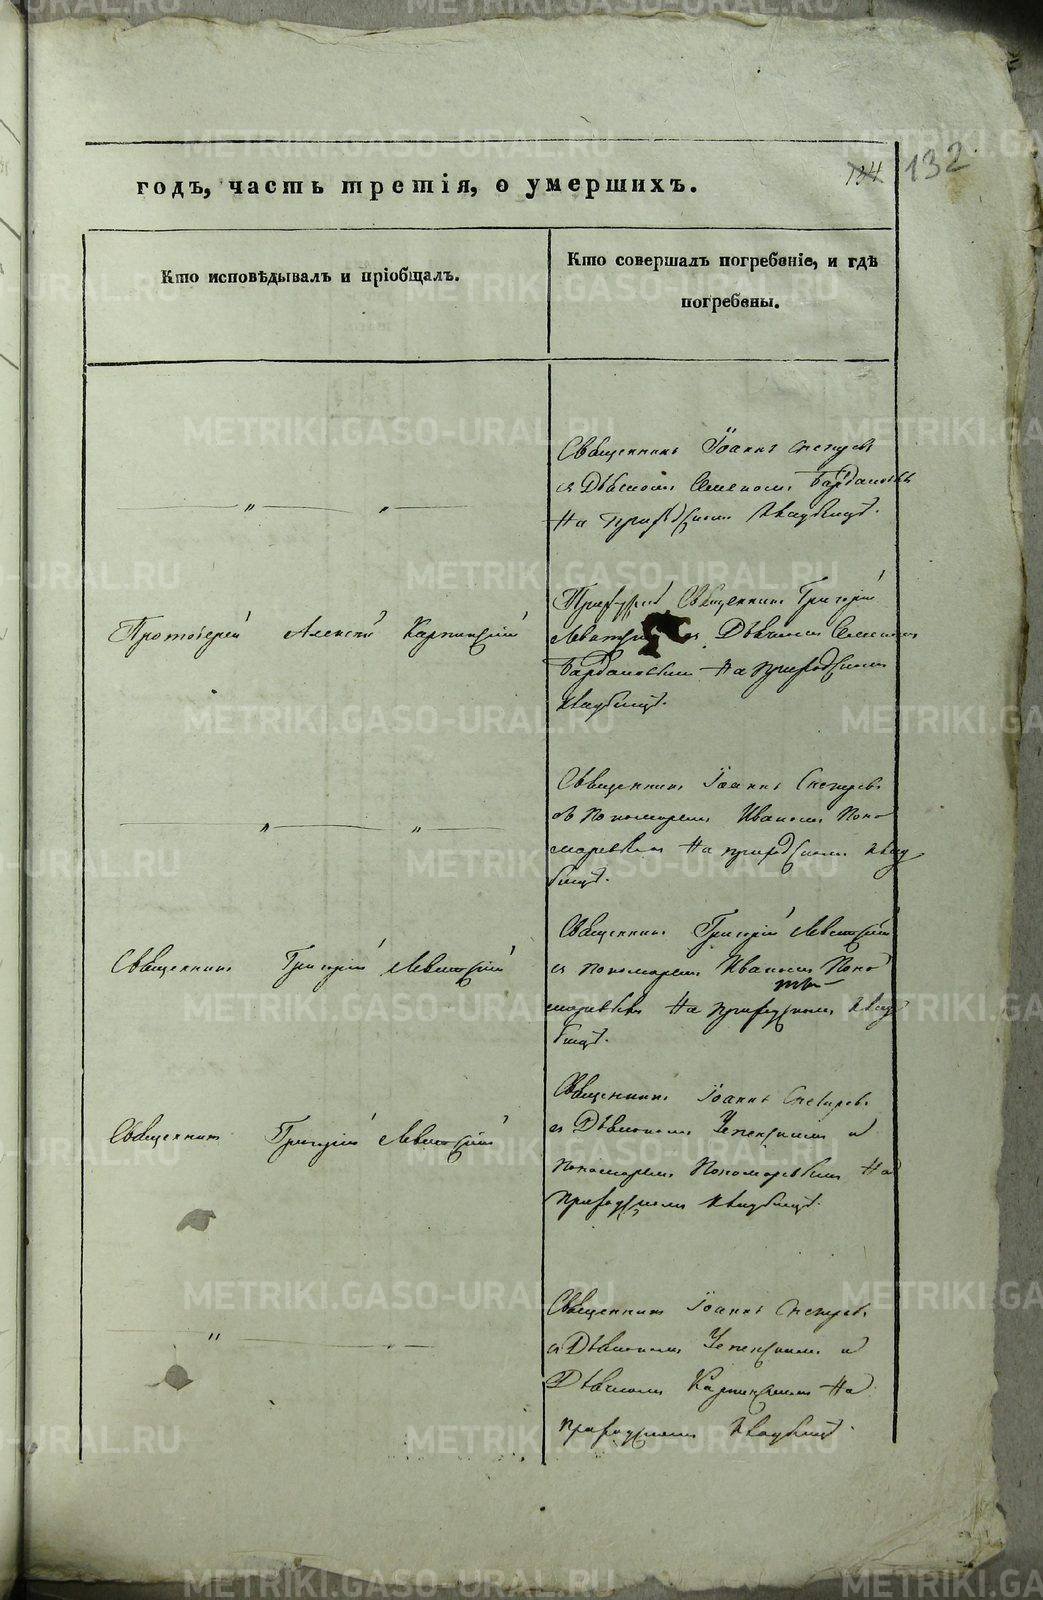 годъ, часть третія, о умершихъ.
134 132
Кто исповѣдывалъ и пріобщалъ.
Кто совершалъ погребеніе, и гдѣ
погребены.
Священникъ Іоаннъ
съ Дьячкомъ Семеномъ
На приходскомъ кладбищѣ.
Протоіерей Алексій Карпинскій
Священникъ Григорій
Левитскій съ Дьячкомъ Семеномъ
На приходскомъ
кладбищѣ.
Священникъ Іоаннъ
съ Пономаремъ Иваномъ Поно-
маревымъ На приходскомъ клад
бищѣ.
Священникъ Григорій Левитскій
Священникъ Григорій Левитскій
съ пономаремъ Иваномъ Поно
маревымъ На приходскомъ клад
бищѣ.
Священникъ Григорій Левитскій
Священникъ Іоаннъ
съ Діакономъ Успенскимъ и
пономаремъ Пономаревымъ На
приходскомъ кладбищѣ.
Священникъ Іоаннъ
съ Діакономъ Успенскимъ и
Дьячкомъ Карпинскимъ На
приходскомъ кладбищѣ.
METRIKI.GASO-URAL.RU